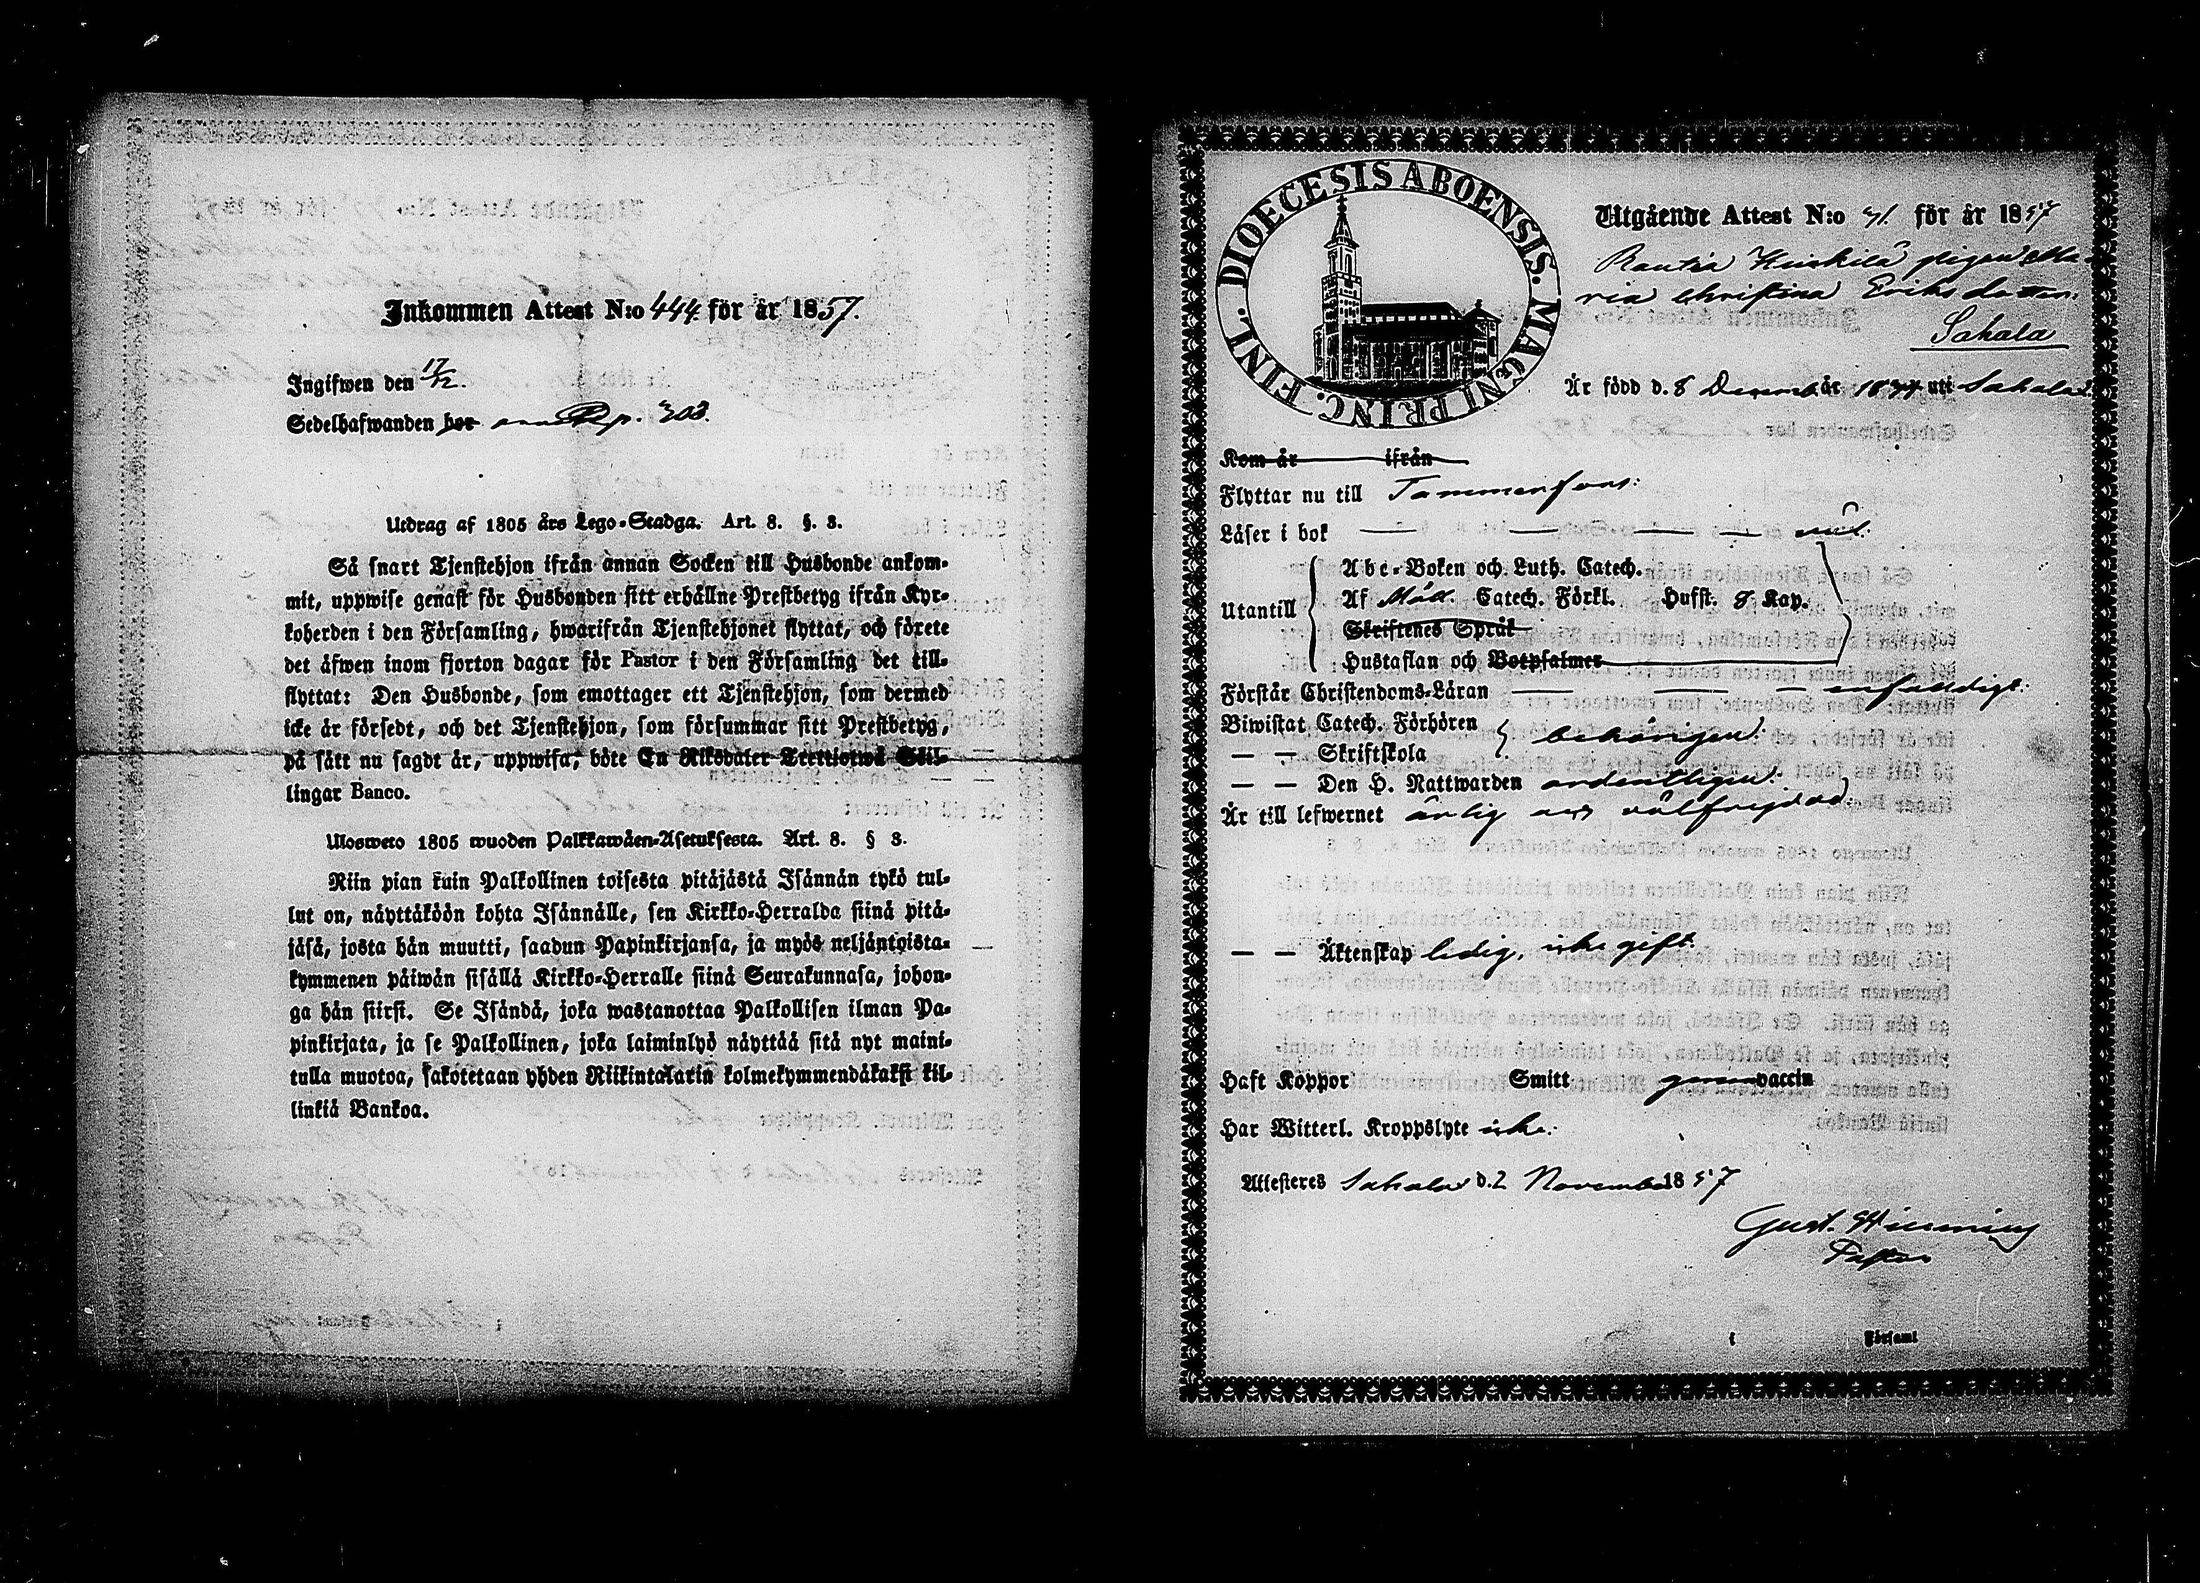 Inkommen Attest N:o 444. för år 1857.
Ingifwen den 17/12.
Sedelhafwanden bor p. 303.
Utdrag af 1805 års Lego-Stadga. Art. 8. §. 3.
Så snart Tjenstehjon ifrån annan Socken till Husbonde ankom-
mit, uppwise genast för Husbonden sitt erhållne Prestbetyg ifrån Kyr-
koherden i den Församling, hwarifrån Tjenstehjonet flyttat, och förete
det äfwen inom fjorton dagar för Pastor i den Församling det till-
flyttat: Den Husbonde, som emottager ett Tjenstehjon, som dermed
icke är försedt, och det Tjenstehjon, som försummar sitt Prestbetyg,
på sätt nu sagdt är, uppwisa, böte En Riksdaler Trettiotwå Skil-
lingar Banco.
Ulosweto 1805 wuoden Palkkawäen-Asetuksesta. Art. 8. § 3.
Niin pian kuin Palkollinen toisesta pitäjästä Isännän tykö tul-
lut on, näyttäköön kohta Isännälle, sen Kirkko-Herralda siinä pitä-
jäsä, josta hän muutti, saadun Papinkirjansa, ja myös neljäntoista-
kymmenen päiwän sisällä Kirkko-Herralle siinä Seurakunnasa, johon-
ga hän siirst. Se Isändä, joka wastanottaa Palkollisen ilman Pa-
pinkirjata, ja se Palkollinen, joka laiminlyö näyttää sitä nyt maini-
tulla muotoa, sakotetaan yhden Riikintalarin kolmekymmendäkaksi kil-
linkiä Bankoa.
DIOECESIS ABOENSIS. MAGNI PRINC. FINL.
Utgående Attest N:o 71. för år 1857
Rautia Kuckila pigan Ma-
ria Christina Eriks dotter.
Sahala
Är född d. 8 Decemb. år uti Sahala
Kom år ifrån
Flyttar nu till Tammerfors:
Läser i bok — — — — väl.
Utantill
Abc-Boken och Luth. Catech.
Af Möll. Catech. Förkl. Husst. 8 Kap.
Skriftenes Språk
Hustaflan och Botpsalmer
Förstår Christendoms-Läran — — — enfaldigt.
Biwistat Catech. Förhören
— — Skriftskola behörigen.
— — Den H. Nattwarden ordentligen.
Är till lefwernet ärlig och välfrejdad
— — Äktenskap ledig, icke gift.
Haft Koppor Smitt genom vaccin
Har Witterl. Kroppslyte icke.
Attesteres Sahala d. 2 November 1857
Gust. Hemming
Pastor
i Församl